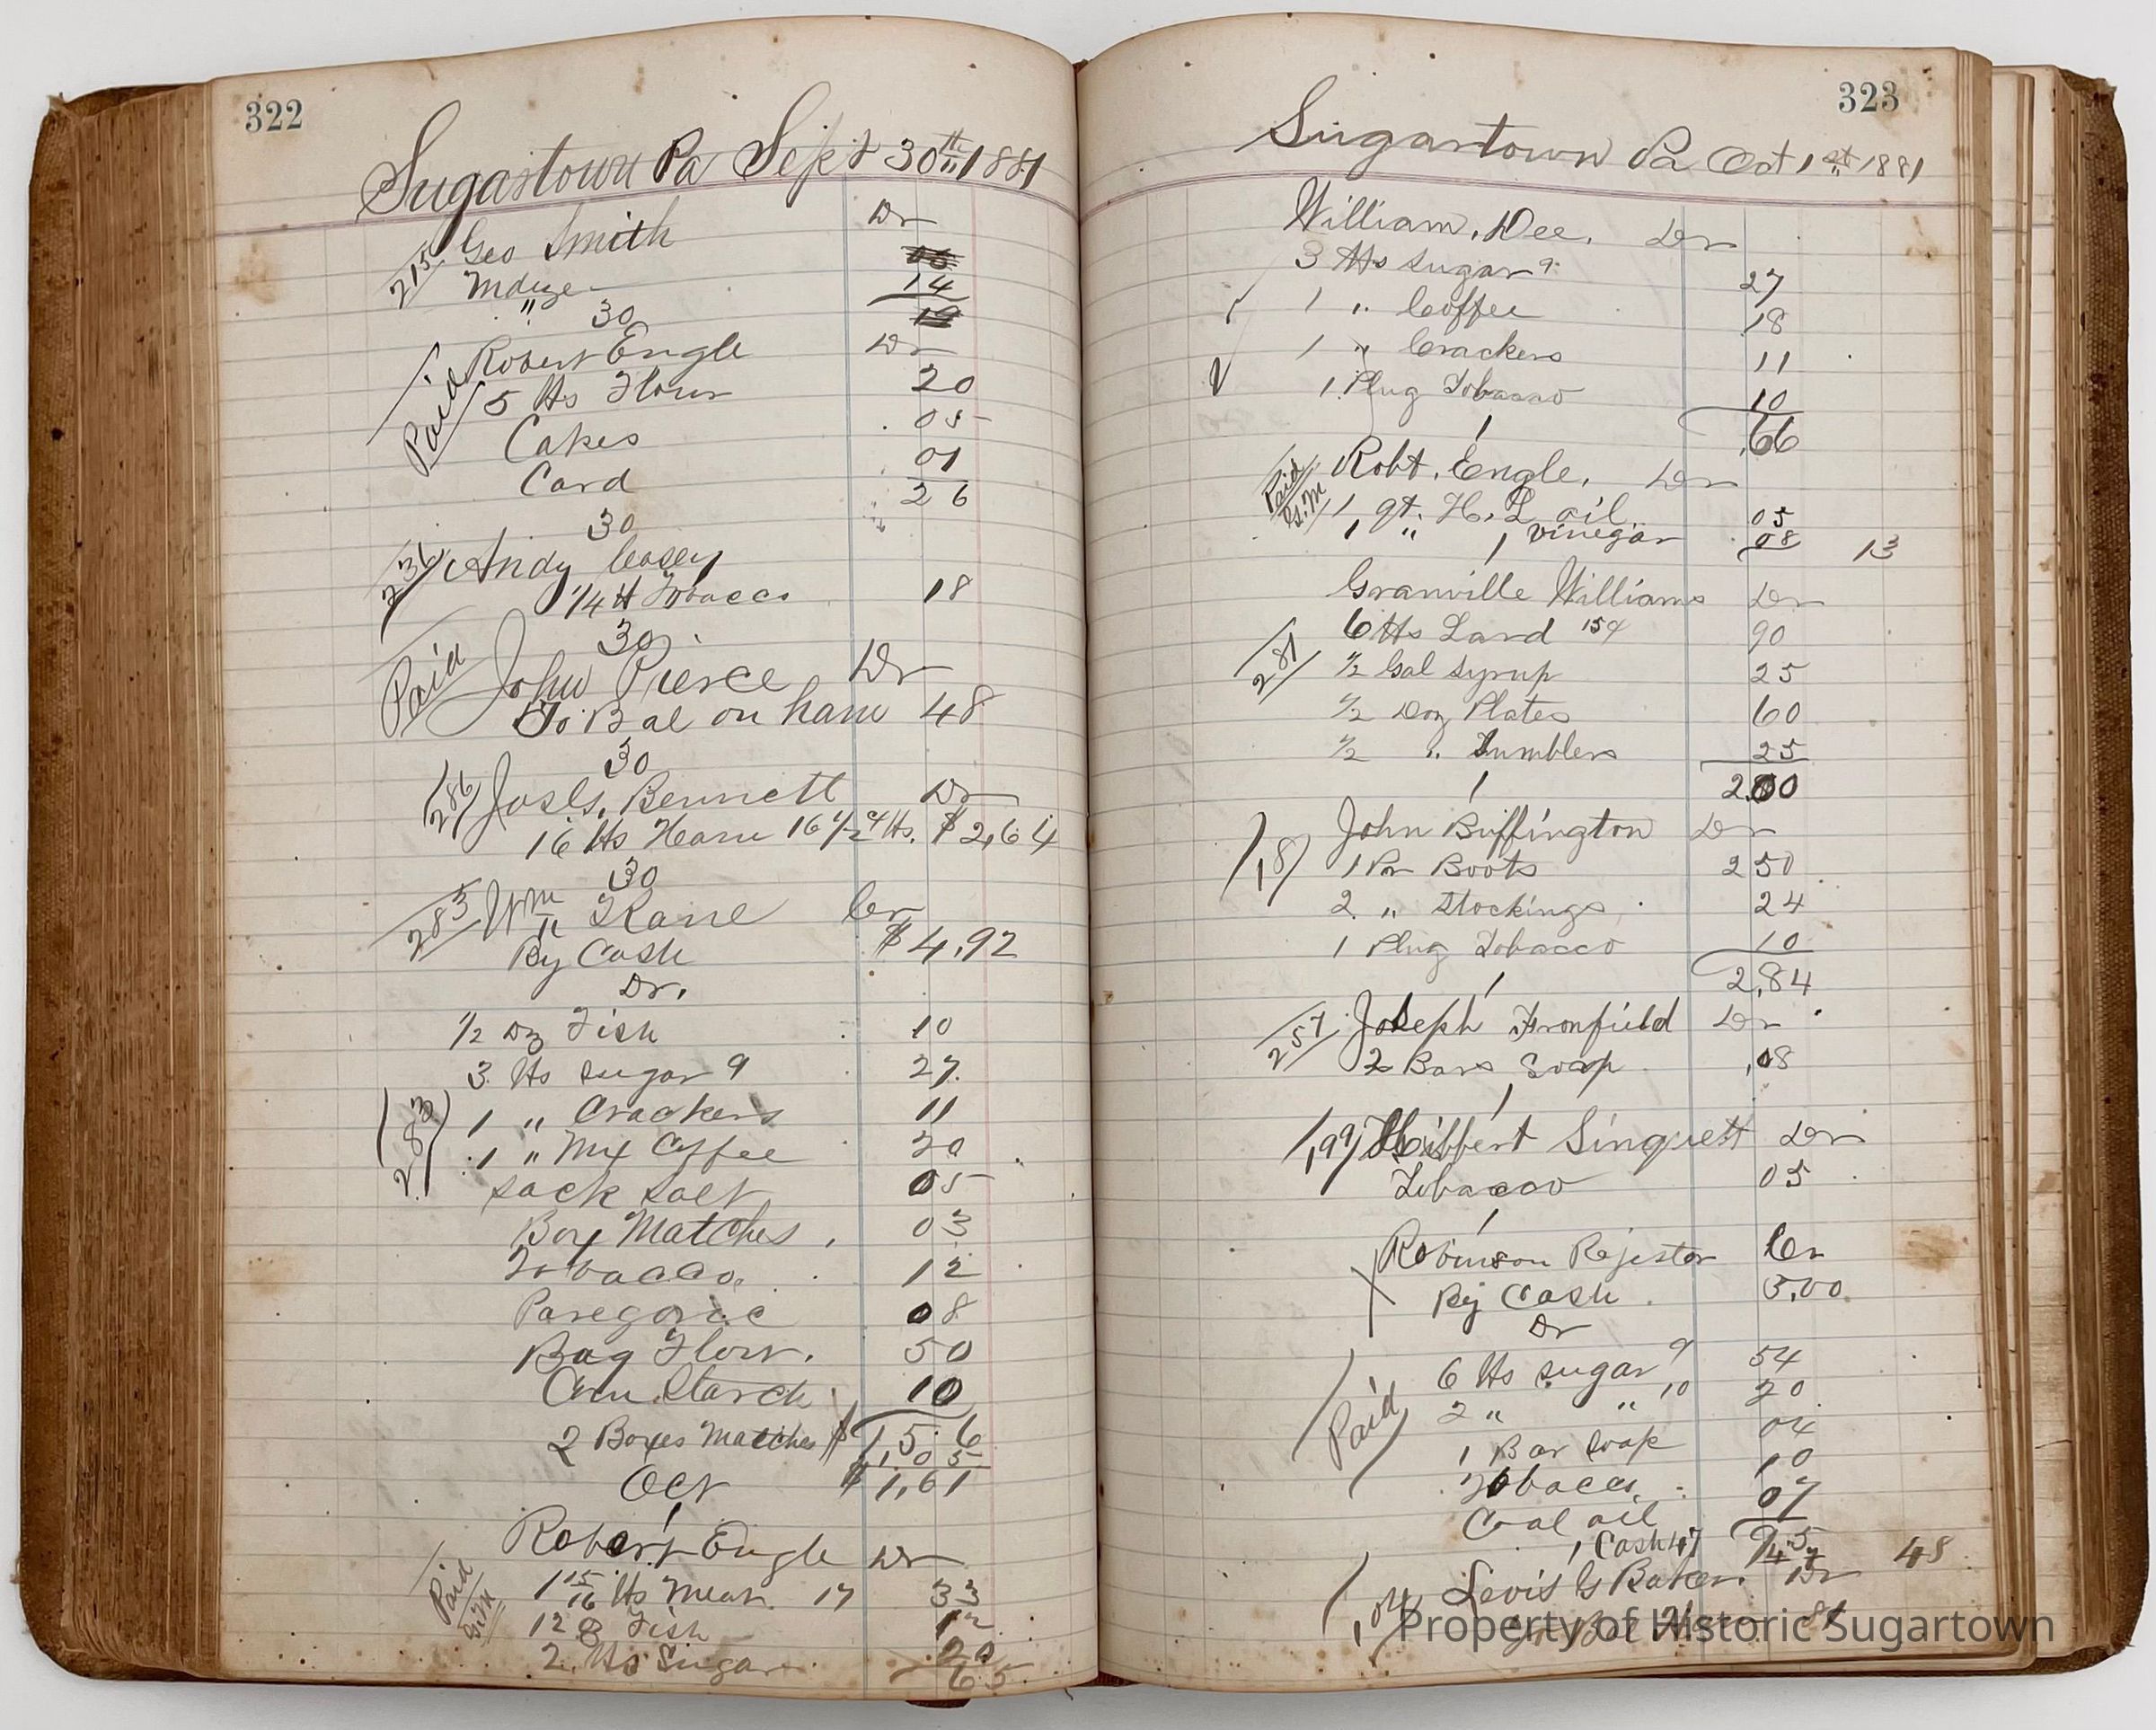 322
Sugartown Pa Sept 30th 1881
215 Geo Smith Dr
Mdze
" 14
30
Robert Engle Dr
Paid 5 lbs Flour 20
Cakes 05
Card 01
26
30
236 Andy Casey
1/4 lb Tobacco 18
30
Paid John Pierce Dr
To Bal on ham 48
30
286 Jos G. Bennett Dr
16 lbs Ham 16 1/2 ¢ lbs. $2,64
30
283 Wm Kane Cr
By Cash $4,92
Dr.
1/2 Dz Fish 10
3 lbs sugar 9 27
283 1 " Crackers 11
1 " Mx Coffee 20
sack salt 05
Box Matches 03
Tobacco 12
Paregoric 08
Bag Flour. 50
Corn Starch 10
2 Boxes Matches $1,56
05
Oct $1,61
1
Robert Engle Dr
Paid 1 15/16 lbs Meat 17 33
12 Fish 12
2 lbs Sugar 20
65
323
Sugartown Pa Oct 1st 1881
William. Dee. Dr
3 lbs sugar 9 27
1 " Coffee 18
1 " Crackers 11
1 Plug Tobacco 10
1 .66
Paid G.M Robt. Engle. Dr
1 qt. H. L oil 05
1 " vinegar 08 13
1
Granville Williams Dr
6 lbs Lard 15¢ 90
281 1/2 Gal syrup 25
1/2 Doz Plates 60
1/2 " Tumblers 25
1 2.00
John Buffington Dr
181 1 Pr Boots 2 50
2 " Stockings 24
1 Plug Tobacco 10
1 2,84
257 Joseph Fronfield Dr
2 Bars Soap ,08
1
199 Hibbert Singuett Dr
Tobacco 05
1
Robinson Rejester Cr
By Cash 5.00
Dr
6 lbs sugar 9 54
2 " " 10 20
Paid 1 Bar soap 04
Tobacco 10
Coal oil 07
1 Cash 47 95
47 48
104 Levis G Baker. Dr
Bal 81
Property of Historic Sugartown